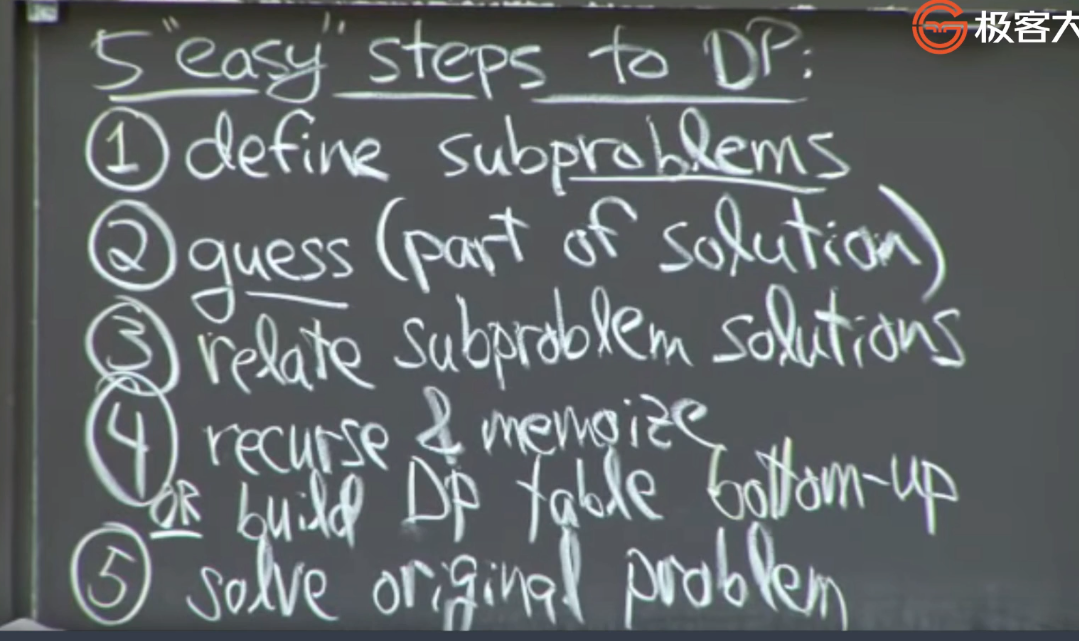 极客大
5 "easy" steps to DP:
① define subproblems
② guess (part of solution)
③ relate subproblem solutions
④ recurse & memoize
OR build DP table bottom-up
⑤ solve original problem